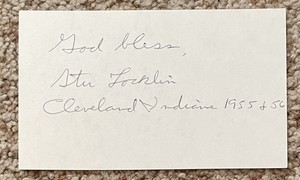 God bless,
Stu Locklin
Cleveland Indians 1955 & 56